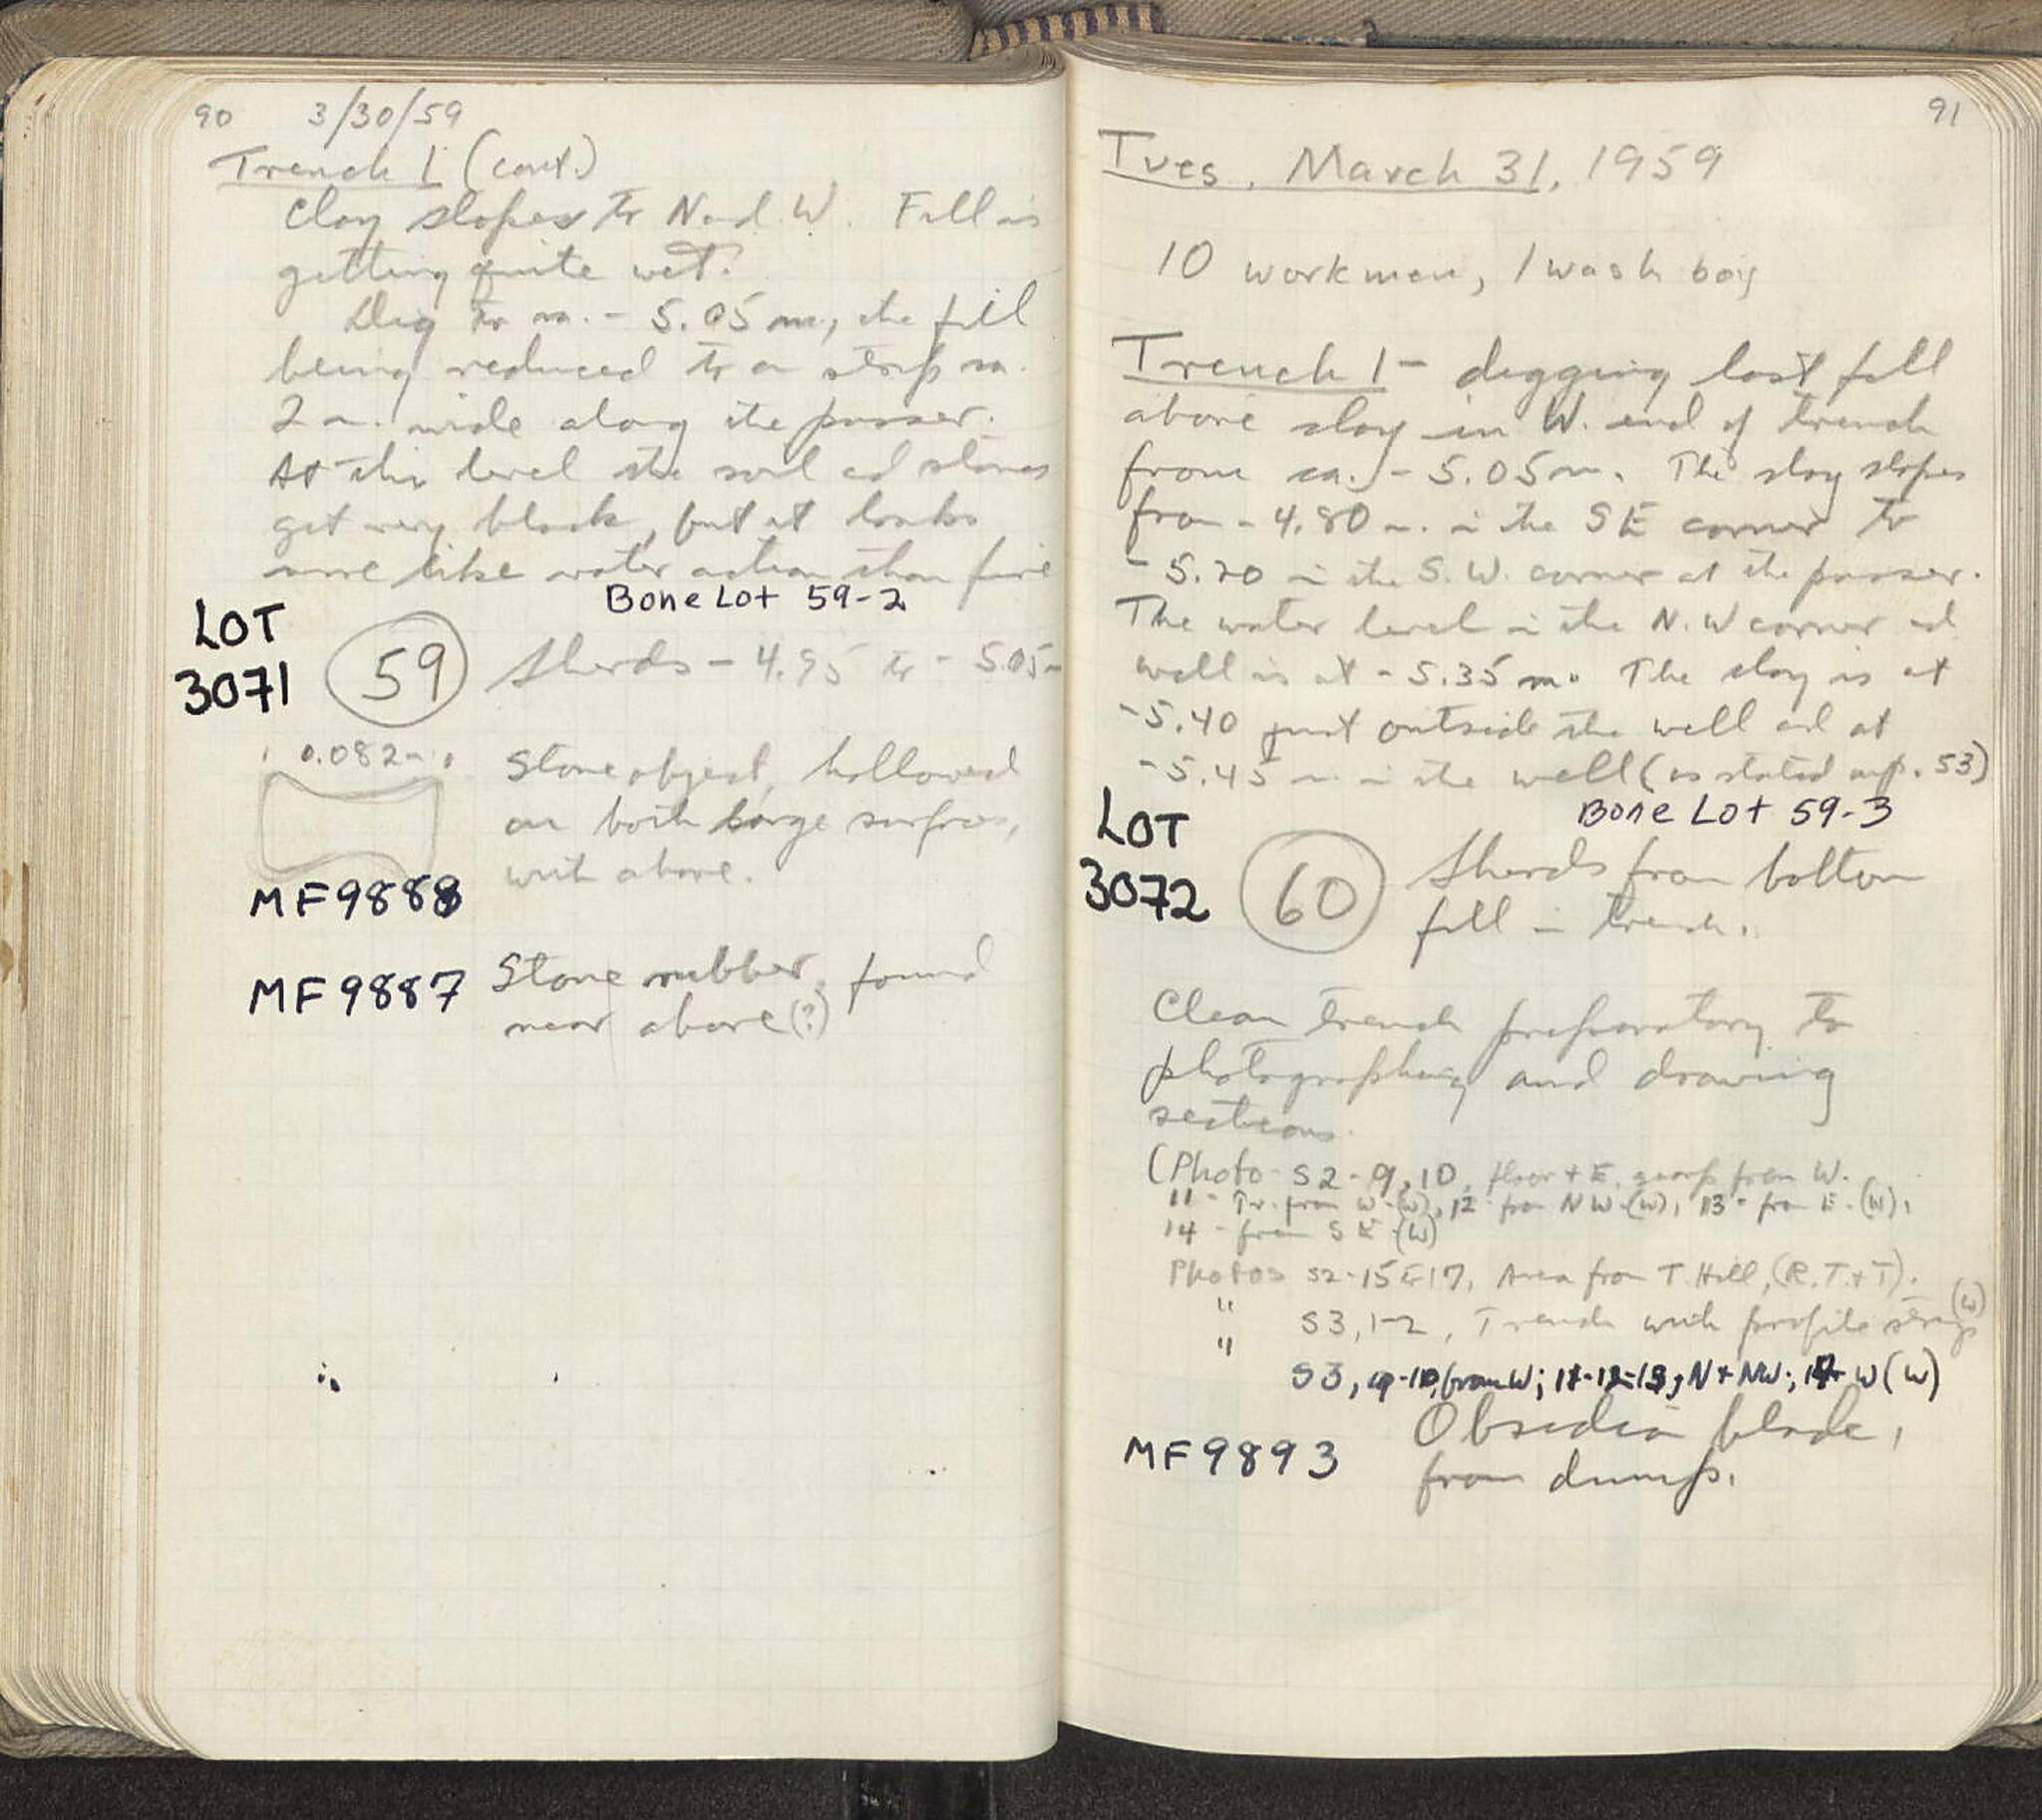 90 3/30/59
Trench 1 (cont.)
Clay slopes to N and W. Fill is
getting quite wet.
Dig to ca. - 5.05 m., the fill
being reduced to a strip ca.
2 m. wide along the scarp.
At this level the soil and stones
get very black, but it looks
more like water action than fire
Bone Lot 59-2
LOT
3071
59 Sherds - 4.95 to - 5.05 m
0.082 m
Stone object, hollowed
on both large surfaces,
with above.
MF9888
MF9887 Stone rubber, found
near above (?)
91
Tues. March 31, 1959
10 workmen, 1 wash boy
Trench 1 - digging last fill
above clay in W. end of trench
from ca. - 5.05 m. The clay slopes
from - 4.80 m. in the SE corner to
- 5.20 in the S.W. corner at the
The water level in the N.W corner and
well is at - 5.35 m. The clay is at
- 5.40 just outside the well and at
- 5.45 m. in the well (as stated on p. 53)
Bone Lot 59-3
LOT
3072
60 Sherds from bottom
fill in trench.
Clean trench preparatory to
photographing and drawing
sections.
(Photo S2-9, 10, floor + E. scarp from W.
11 - Tr. from W-(W), 12 from NW-(W), 13 - from E-(W),
14 - from SE-(W)
Photos S2-15-17, Area from T. Hill, (R.T.+T).
" S3, 1-2, Trench with profile strings (W)
"
S3, 9-10, from W; 11-12-13, N + NW; 14- W (W)
MF9893 Obsidian blade,
from dump.